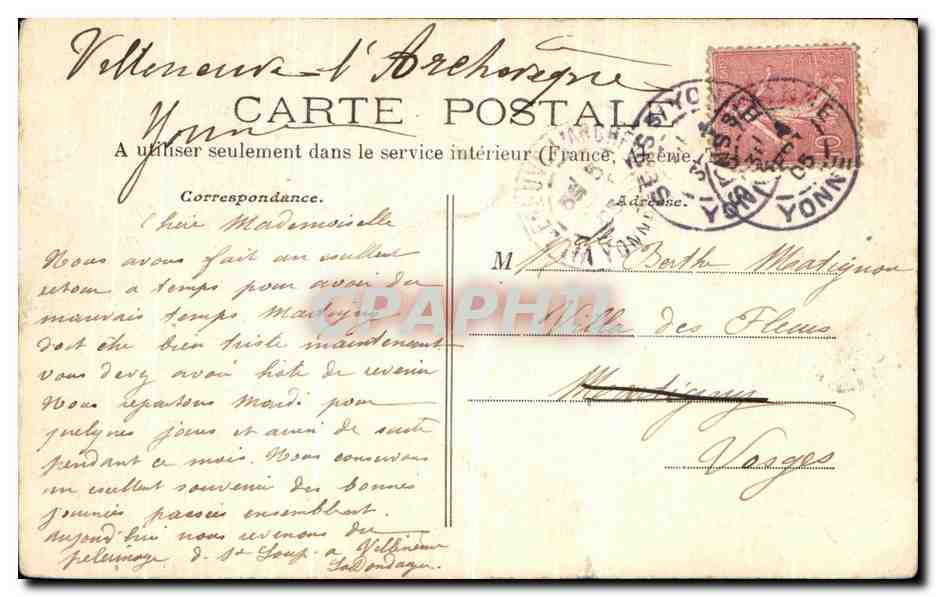 Villeneuve-l'Archevêque
Yonne
CARTE POSTALE
A utiliser seulement dans le service intérieur (France, Algérie,
Correspondance.
Adresse.
Chère Mademoiselle
Nous avons fait un excellent
retour a temps pour avoir du
mauvais temps Martigny
doit être bien triste maintenant
vous devez avoir hâte de revenir
Nous repartons Mardi pour
quelques jours et ainsi de suite
pendant ce mois. Nous conservons
un excellent souvenir des bonnes
journées passées ensemblent.
aujourd'hui nous revenons du
pelerinage d. St Loup a Villeneuve
M Berthe Matignon
Villa des Fleurs
Martigny
Vosges
YONNE
CPAPHIL